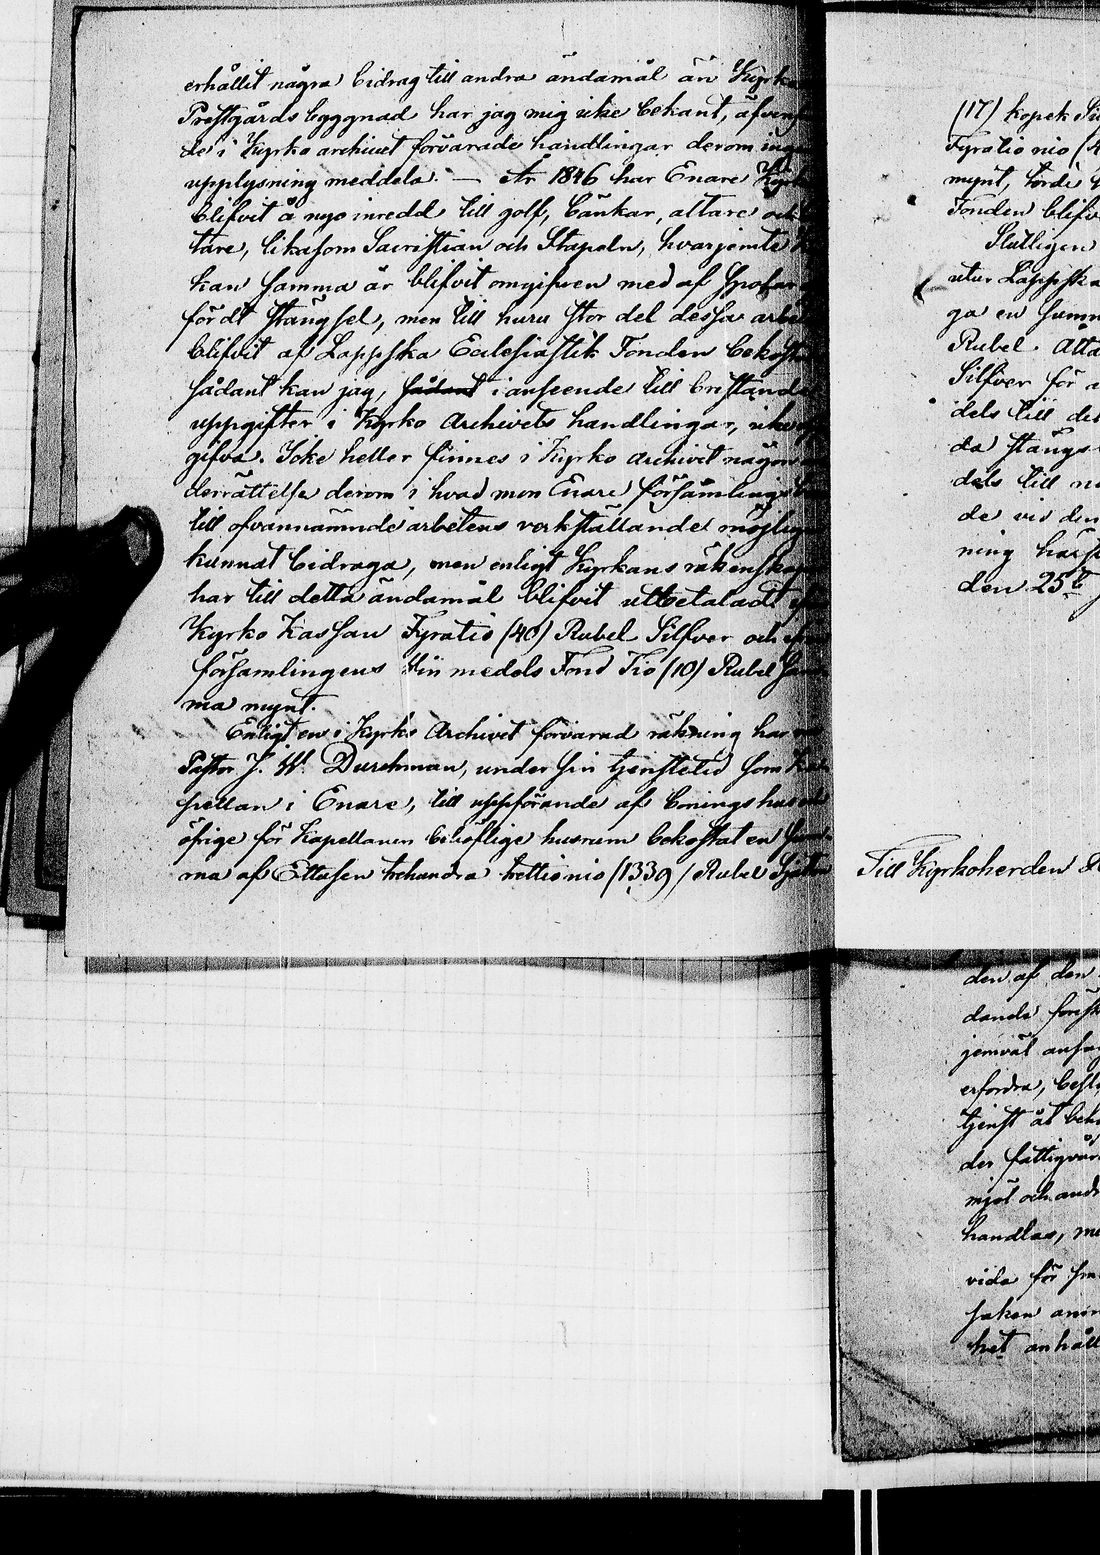 erhållit några bidrag till andra ändamål än Kyrko
Prestgårds byggnad har jag mig icke bekant, äfven
de i Kyrko archivet förvarade handlingar derom ingen
upplysning meddela. — År 1846 har Enare Kyrka
blifvit å nyo inredd till golf, bänkar, altare och
tare, likasom Sacristian och Stapeln, hvarjemte
kan samma år blifvit omgifven med af
fördt stängsel, men till huru stor del dessa arbe
blifvit af Lappska Ecclesiastik Fonden bekostade
sådant kan jag, sådant i anseende till bristande
uppgifter i Kyrko Archivets handlingar, icke
gifva. Icke heller finnes i Kyrko archivet någon
derrättelse derom i hvad mon Enare församlings
till ofvannämnde arbetens verkställande möjligen
kunnat bidraga, men enligt Kyrkans räkenskaper
har till detta ändamål blifvit utbetaladt
Kyrko Kassan Fyratio (40) Rubel Silfver och
församlingens Vin medels Fond Tio (10) Rubel sam
ma mynt.
Enligt en i Kyrko Archivet förvarad räkning har
Pastor J. W. Durchman, under sin tjenstetid som Ka
pellan i Enare, till uppförande af boningshus och
öfrige för Kapellanen behöflige husrum bekostat en sum
ma af Ettusen trehundra trettionio (1339) Rubel Sjutton
(17) kopek Si
Fyratio nio (4
mynt, borde
Fonden blifv
Slutligen
utur Lappska
ga en summ
Rubel Åtta
Silfver för a
dels till det
da stängs
dels till
de vid den
ning
den 25
Till Kyrkoherden
den af den
dande föresk
jemväl
erfordra, best
tjenst åt beh
der fattigvår
mjöl och andr
handlas, me
vida för
saken
het anhåll